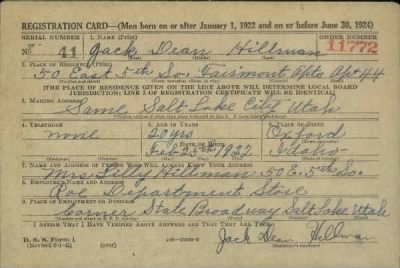 REGISTRATION CARD—(Men born on or after January 1, 1922 and on or before June 30, 1924)
SERIAL NUMBER 1. NAME (Print) ORDER NUMBER
N- 41 Jack Dean Hillman 11772
2. PLACE OF RESIDENCE (Print)
50 East 5th So. Fairmont Apts Apt 44
[THE PLACE OF RESIDENCE GIVEN ON THE LINE ABOVE WILL DETERMINE LOCAL BOARD
JURISDICTION; LINE 2 OF REGISTRATION CERTIFICATE WILL BE IDENTICAL]
3. MAILING ADDRESS
Same Salt Lake City Utah
4. TELEPHONE 5. AGE IN YEARS 6. PLACE OF BIRTH
none 20 yrs Oxford
DATE OF BIRTH
Feb 25th 1922 Idaho
7. NAME AND ADDRESS OF PERSON WHO WILL ALWAYS KNOW YOUR ADDRESS
Mrs. Lilly Hillman 50 E. 5th So.
8. EMPLOYER'S NAME AND ADDRESS
Department Store
9. PLACE OF EMPLOYMENT OR BUSINESS
Corner State Broadway Salt Lake Utah
I AFFIRM THAT I HAVE VERIFIED ABOVE ANSWERS AND THAT THEY ARE TRUE.
D. S. S. Form 1
(Revised 6-9-42) (over)
Jack Dean Hillman